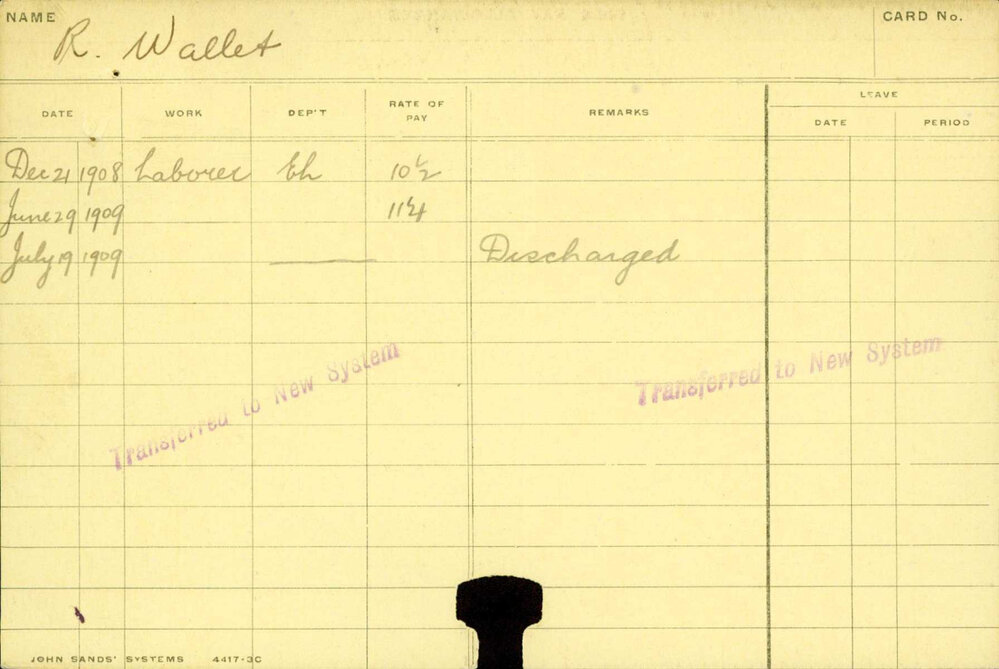 NAME R. Wallet CARD No.
DATE WORK DEP'T RATE OF PAY REMARKS LEAVE
DATE PERIOD
Dec 21 1908 Laborer 10½
June 29 1909 11¼
July 19 1909 Discharged
Transferred to New System
Transferred to New System
JOHN SANDS' SYSTEMS 4417-3C